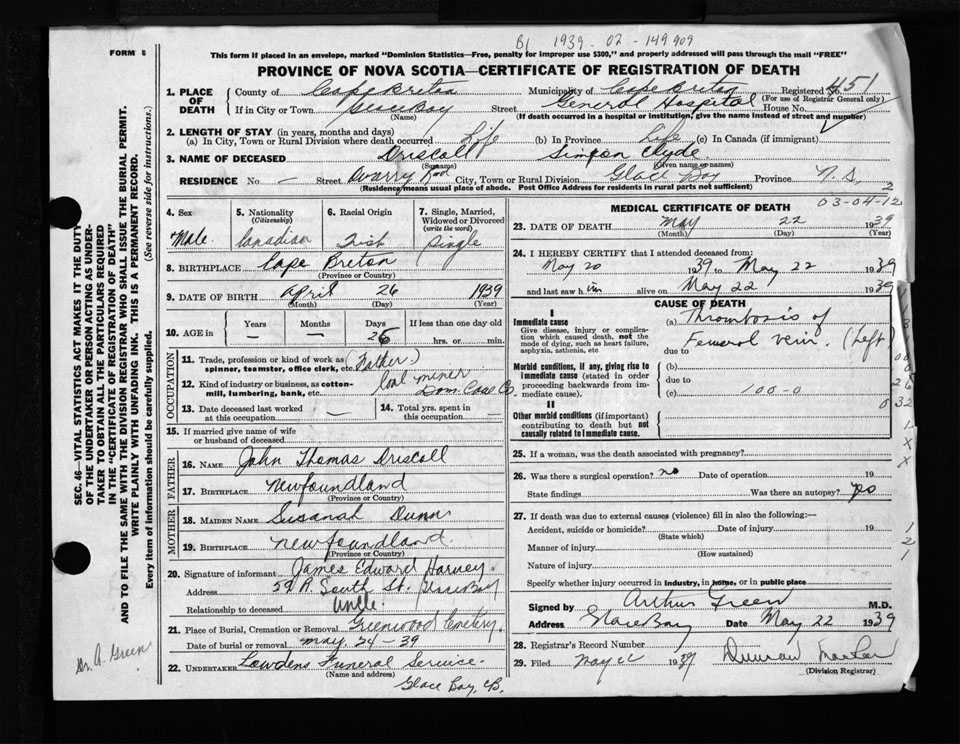 B1 1939-02-149909
FORM 6
This form if placed in an envelope, marked "Dominion Statistics—Free, penalty for improper use $300," and properly addressed will pass through the mail "FREE"
PROVINCE OF NOVA SCOTIA—CERTIFICATE OF REGISTRATION OF DEATH
1. PLACE OF DEATH
County of Cape Breton Municipality of Cape Breton Registered No. 451
(For use of Registrar General only)
If in City or Town Glace Bay Street General Hospital House No.
(Name) (If death occurred in a hospital or institution, give the name instead of street and number)
2. LENGTH OF STAY (in years, months and days)
(a) In City, Town or Rural Division where death occurred Life (b) In Province Life (c) In Canada (if immigrant)
3. NAME OF DECEASED Driscoll Simeon Clyde
(Surname) (Given name or names)
RESIDENCE No. — Street Quarry Road City, Town or Rural Division Glace Bay Province N.S.
(Residence means usual place of abode. Post Office Address for residents in rural parts not sufficient)
2
03-04-12
4. Sex Male
5. Nationality (Citizenship) Canadian
6. Racial Origin Irish
7. Single, Married, Widowed or Divorced (write the word) Single
8. BIRTHPLACE Cape Breton
(Province or Country)
9. DATE OF BIRTH April 26 1939
(Month) (Day) (Year)
10. AGE in Years — Months — Days 26 If less than one day old
hrs. or min.
OCCUPATION
11. Trade, profession or kind of work as spinner, teamster, office clerk, etc. (Father)
12. Kind of industry or business, as cotton-mill, lumbering, bank, etc. Coal miner
Dom. Coal Co.
13. Date deceased last worked at this occupation —
14. Total yrs. spent in this occupation —
15. If married give name of wife or husband of deceased
FATHER
16. NAME John Thomas Driscoll
17. BIRTHPLACE Newfoundland
(Province or Country)
MOTHER
18. MAIDEN NAME Susanah Dunn
19. BIRTHPLACE Newfoundland
(Province or Country)
20. Signature of informant James Edward Harvey
Address 59 A. South St. Glace Bay
Relationship to deceased Uncle
21. Place of Burial, Cremation or Removal Greenwood Cemetery
Date of burial or removal May 24-39
22. UNDERTAKER Lowdens Funeral Service.
(Name and address)
Glace Bay, CB.
MEDICAL CERTIFICATE OF DEATH
23. DATE OF DEATH May 22 1939
(Month) (Day) (Year)
24. I HEREBY CERTIFY that I attended deceased from
May 20 1939 to May 22 1939
and last saw him alive on May 22 1939
CAUSE OF DEATH
I
Immediate cause
Give disease, injury or complication which caused death, not the mode of dying, such as heart failure, asphyxia, asthenia, etc
(a) Thrombosis of
Femoral vein. (Left)
due to
Morbid conditions, if any, giving rise to immediate cause (stated in order proceeding backwards from immediate cause).
(b)
due to
(c) 100-0
II
Other morbid conditions (if important) contributing to death but not causally related to immediate cause.
25. If a woman, was the death associated with pregnancy?
26. Was there a surgical operation? no Date of operation 19
State findings Was there an autopsy? no
27. If death was due to external causes (violence) fill in also the following:—
Accident, suicide or homicide? Date of injury 19
(State which)
Manner of injury
(How sustained)
Nature of injury
Specify whether injury occurred in industry, in home, or in public place
Signed by Arthur Green M.D.
Address Glace Bay Date May 22 1939
28. Registrar's Record Number
29. Filed May 22 1939
(Division Registrar)
SEC. 46—VITAL STATISTICS ACT MAKES IT THE DUTY
OF THE UNDERTAKER OR PERSON ACTING AS UNDER-
TAKER TO OBTAIN ALL THE PARTICULARS REQUIRED
IN THE "CERTIFICATE OF REGISTRATION OF DEATH"
AND TO FILE THE SAME WITH THE DIVISION REGISTRAR WHO SHALL ISSUE THE BURIAL PERMIT.
WRITE PLAINLY WITH UNFADING INK. THIS IS A PERMANENT RECORD.
Every item of information should be carefully supplied. (See reverse side for instructions.)
Dr. A. Green